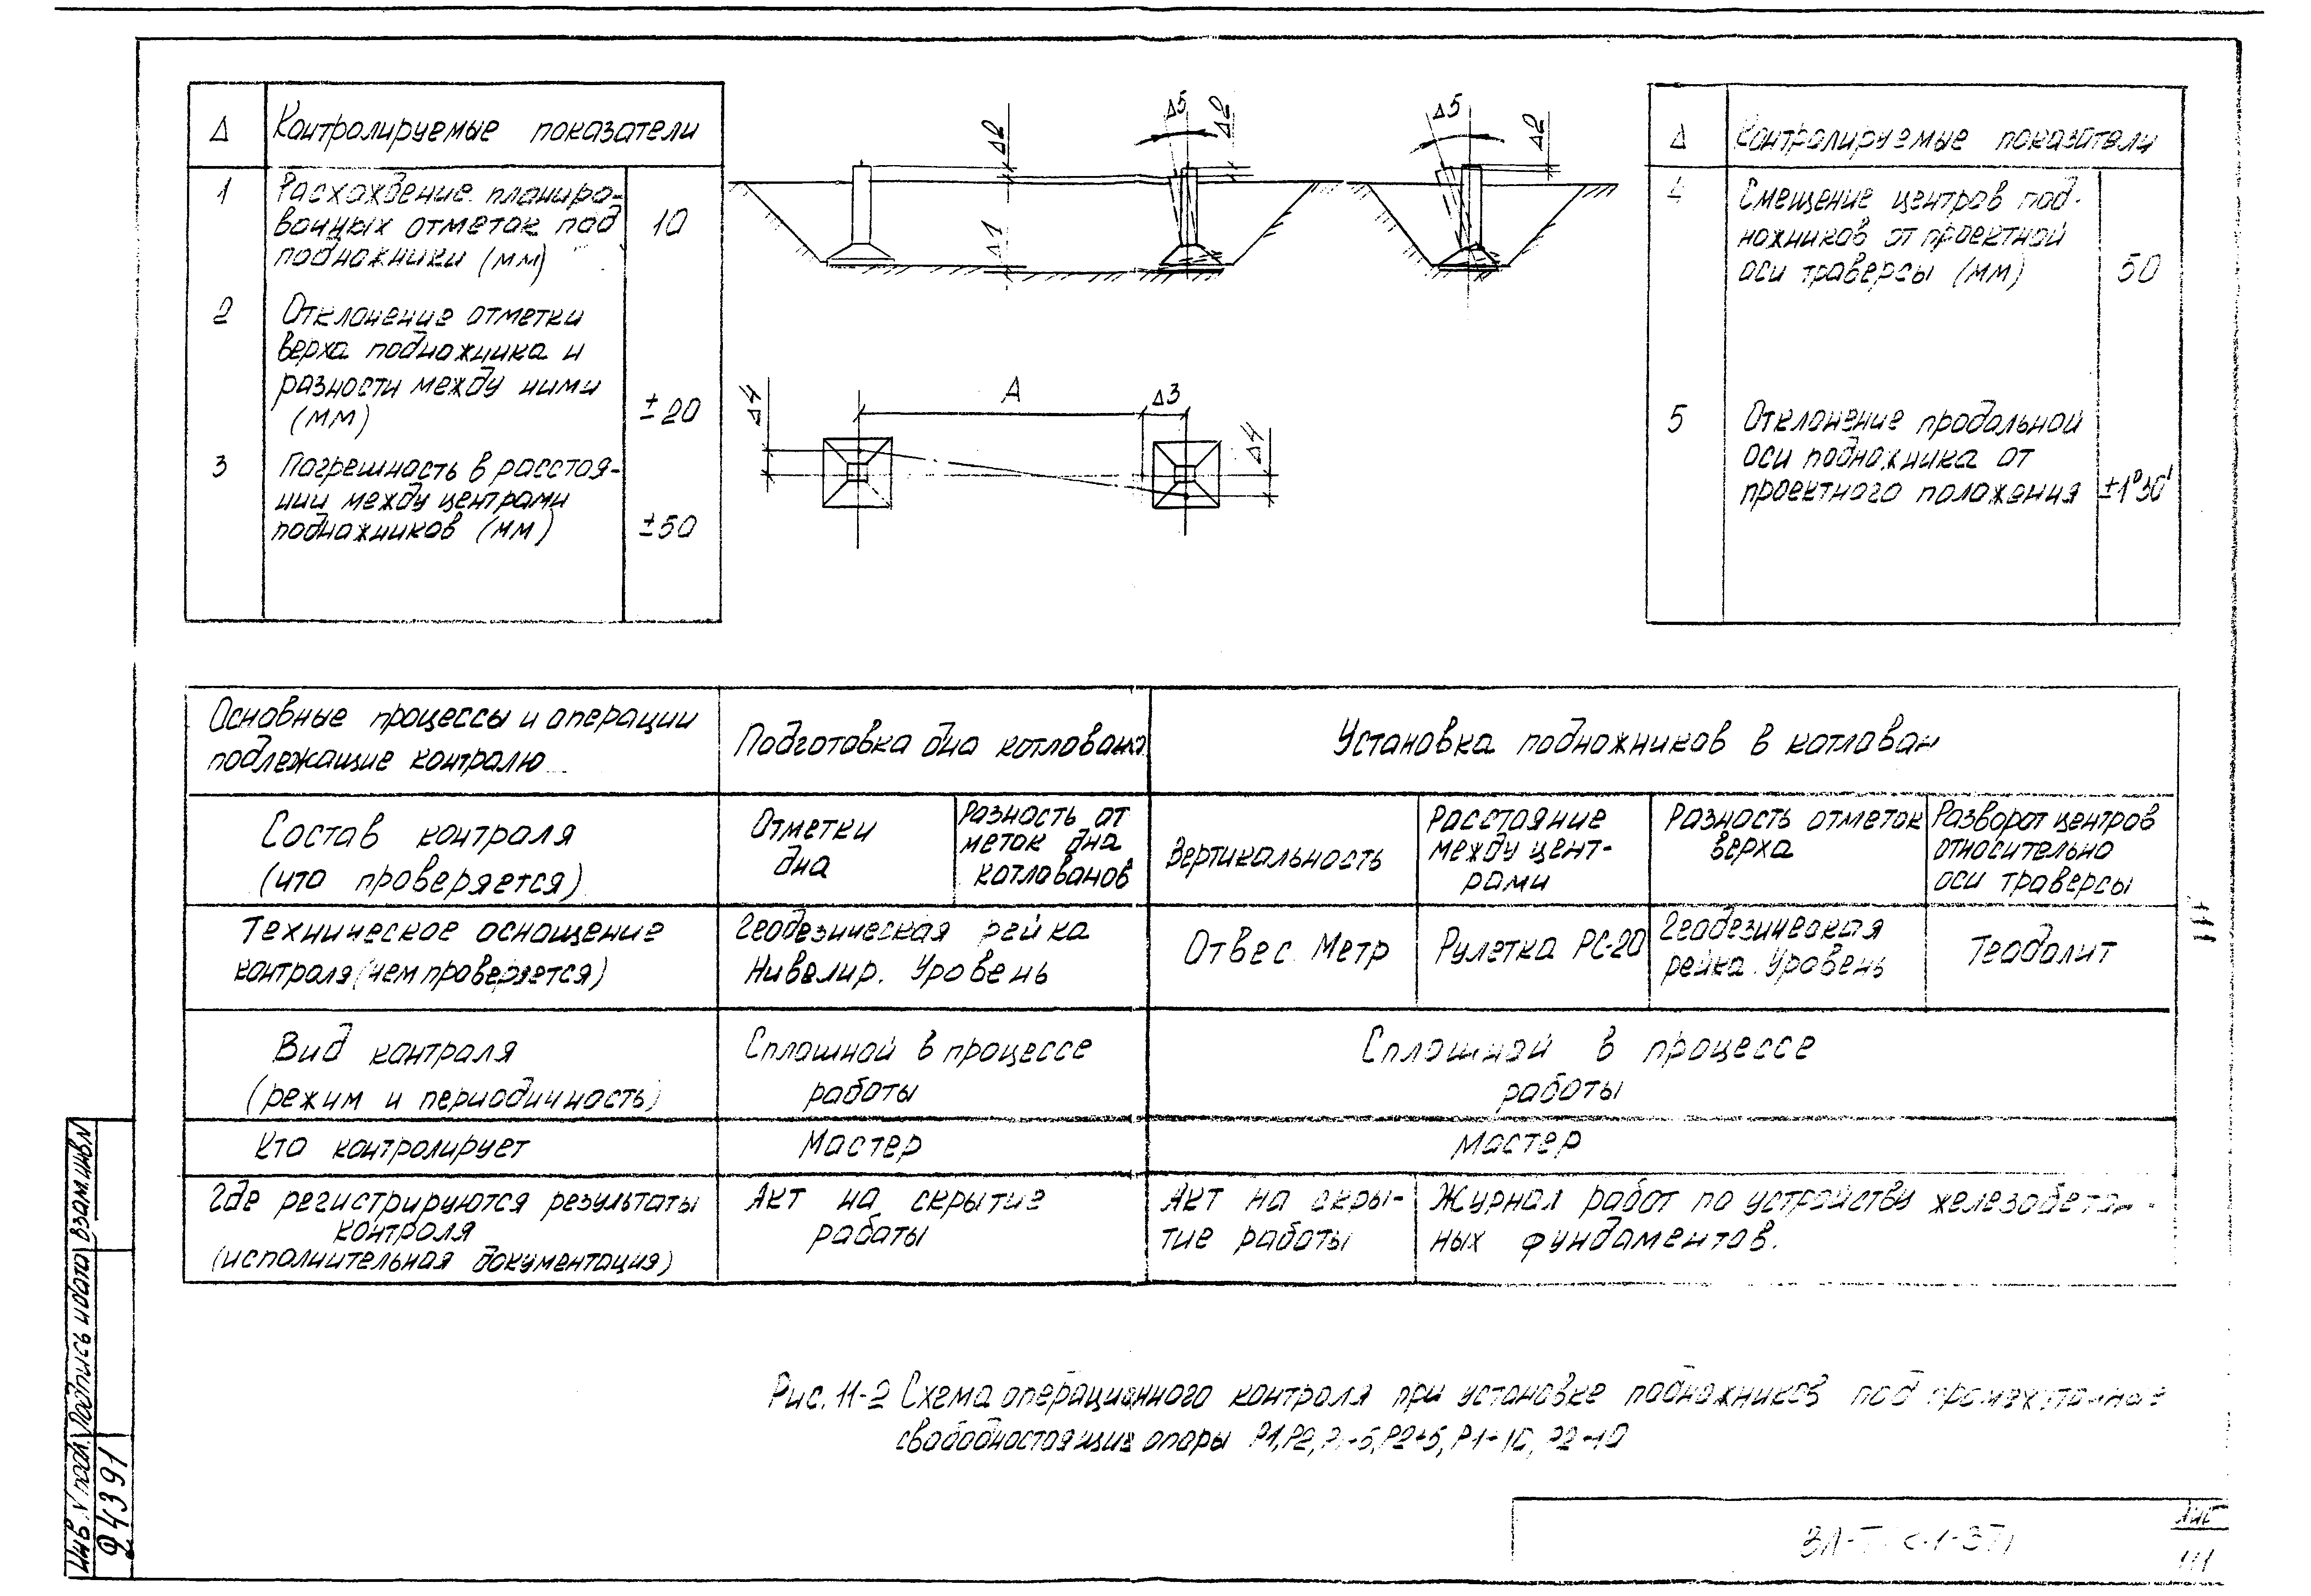 Δ Контролируемые показатели
1 Расхождение планиро-
вочных отметок под 10
подножники (мм)
2 Отклонение отметки
верха подножника и
разности между ними
(мм) ±20
3 Погрешность в расстоя-
нии между центрами
подножников (мм) ±50
Δ2 Δ5 Δ2 Δ5 Δ2
Δ1
Δ4 A Δ3 Δ4
Δ Контролируемые показатели
4 Смещение центров под-
ножников от проектной
оси траверсы (мм) 50
5 Отклонение продольной
оси подножника от
проектного положения ±1°30'
Основные процессы и операции
подлежащие контролю
Подготовка дна котлована
Установка подножников в котлован
Состав контроля
(что проверяется)
Отметки
дна
Разность от
меток дна
котлованов
Вертикальность
Расстояние
между цент-
рами
Разность отметок
верха
Разворот центров
относительно
оси траверсы
Техническое оснащение
контроля (чем проверяется)
Геодезическая рейка
Нивелир. Уровень
Отвес. Метр
Рулетка РС-20
Геодезическая
рейка. Уровень
Теодолит
Вид контроля
(режим и периодичность)
Сплошной в процессе
работы
Сплошной в процессе
работы
Кто контролирует
Мастер
Мастер
Где регистрируются результаты
контроля
(исполнительная документация)
Акт на скрытие
работы
Акт на скры-
тие работы
Журнал работ по устройству железобетон-
ных фундаментов.
Рис. 11-2 Схема операционного контроля при установке подножников под промежуточные
свободностоящие опоры Р1, Р2, Р2+5, Р1-10, Р2-10
Инв. N подл. Подпись и дата Взам. инв. N
24391
Лист
111